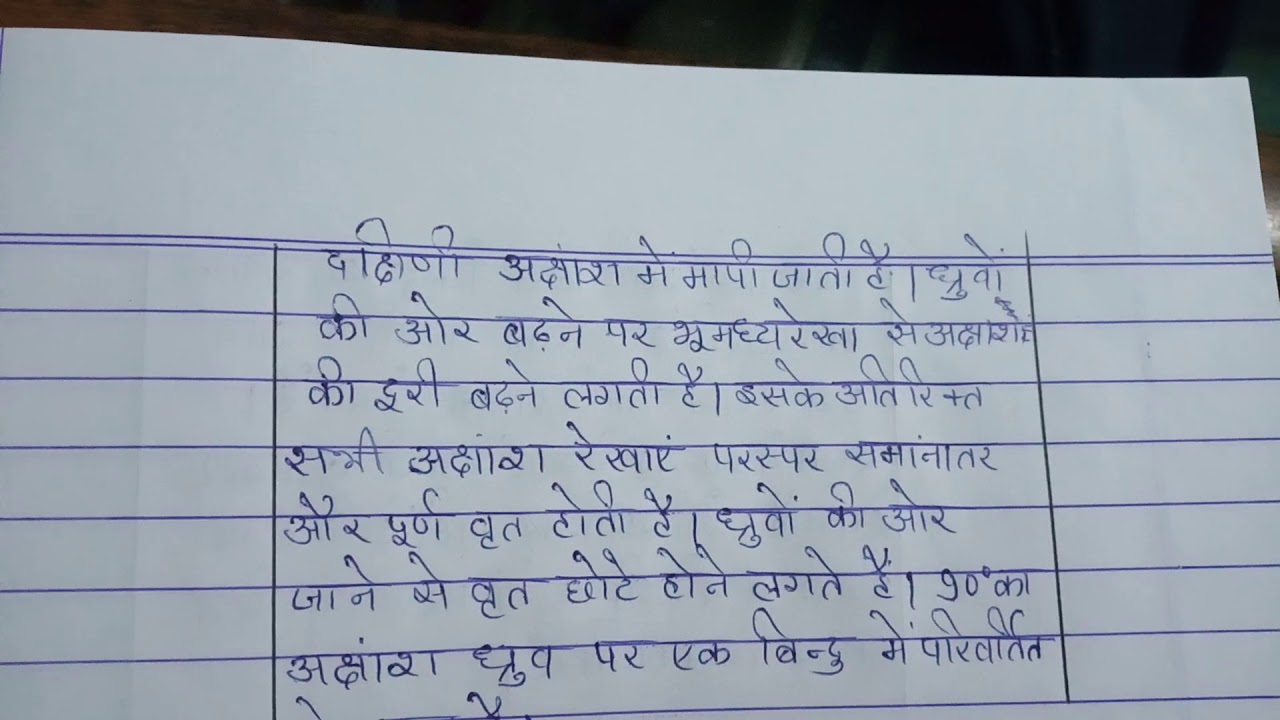 दक्षिणी अक्षांश में मापी जाती है। ध्रुवों
की ओर बढ़ने पर भूमध्यरेखा से अक्षाशों
की दूरी बढ़ने लगती है। इसके अतिरिक्त
सभी अक्षांश रेखाएं परस्पर समांनातर
और पूर्ण वृत होती है। ध्रुवों की ओर
जाने से वृत छोटे होने लगते हैं। 90°का
अक्षांश ध्रुव पर एक बिन्दु में परिवर्तित